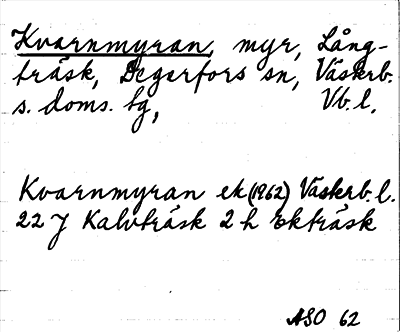 Kvarnmyran, myr, Lång-
träsk, Degerfors sn, Västerb.
s. doms. lg, Vb. l.
Kvarnmyran ek (1962) Västerb. l.
22 J Kalvträsk 2 h Ekträsk
ASO 62